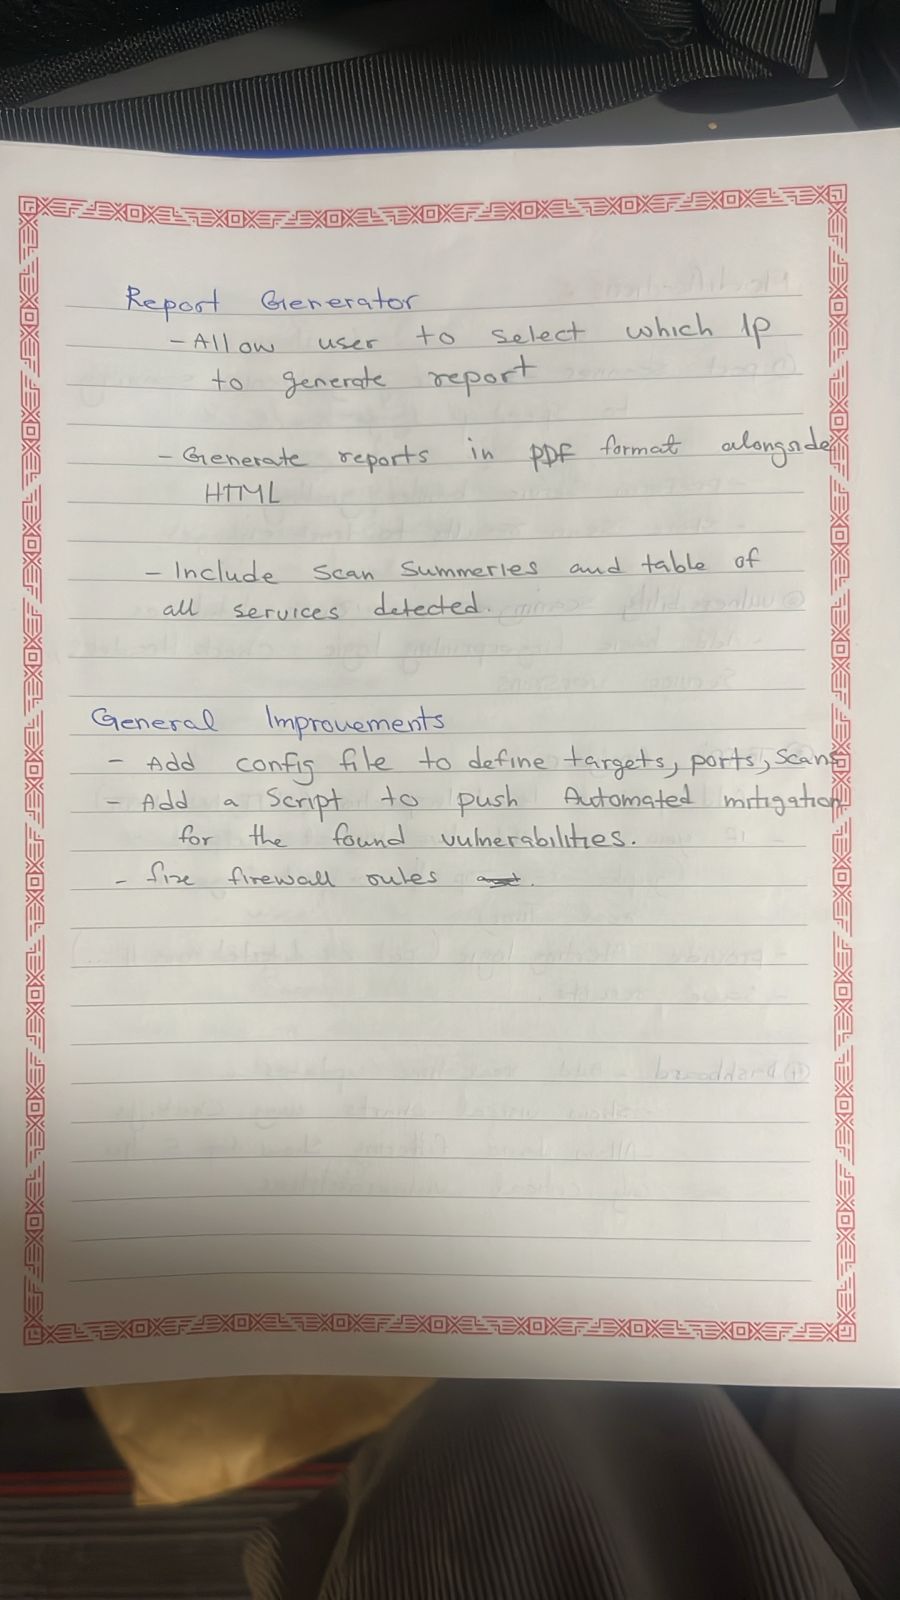 Report Generator
- Allow user to select which Ip
to generate report
- Generate reports in PDF format alongside
HTML
- Include Scan Summeries and table of
all services detected.
General Improvements
- Add config file to define targets, ports, Scans
- Add a Script to push Automated mitigation
for the found vulnerabilities.
- fire firewall rules